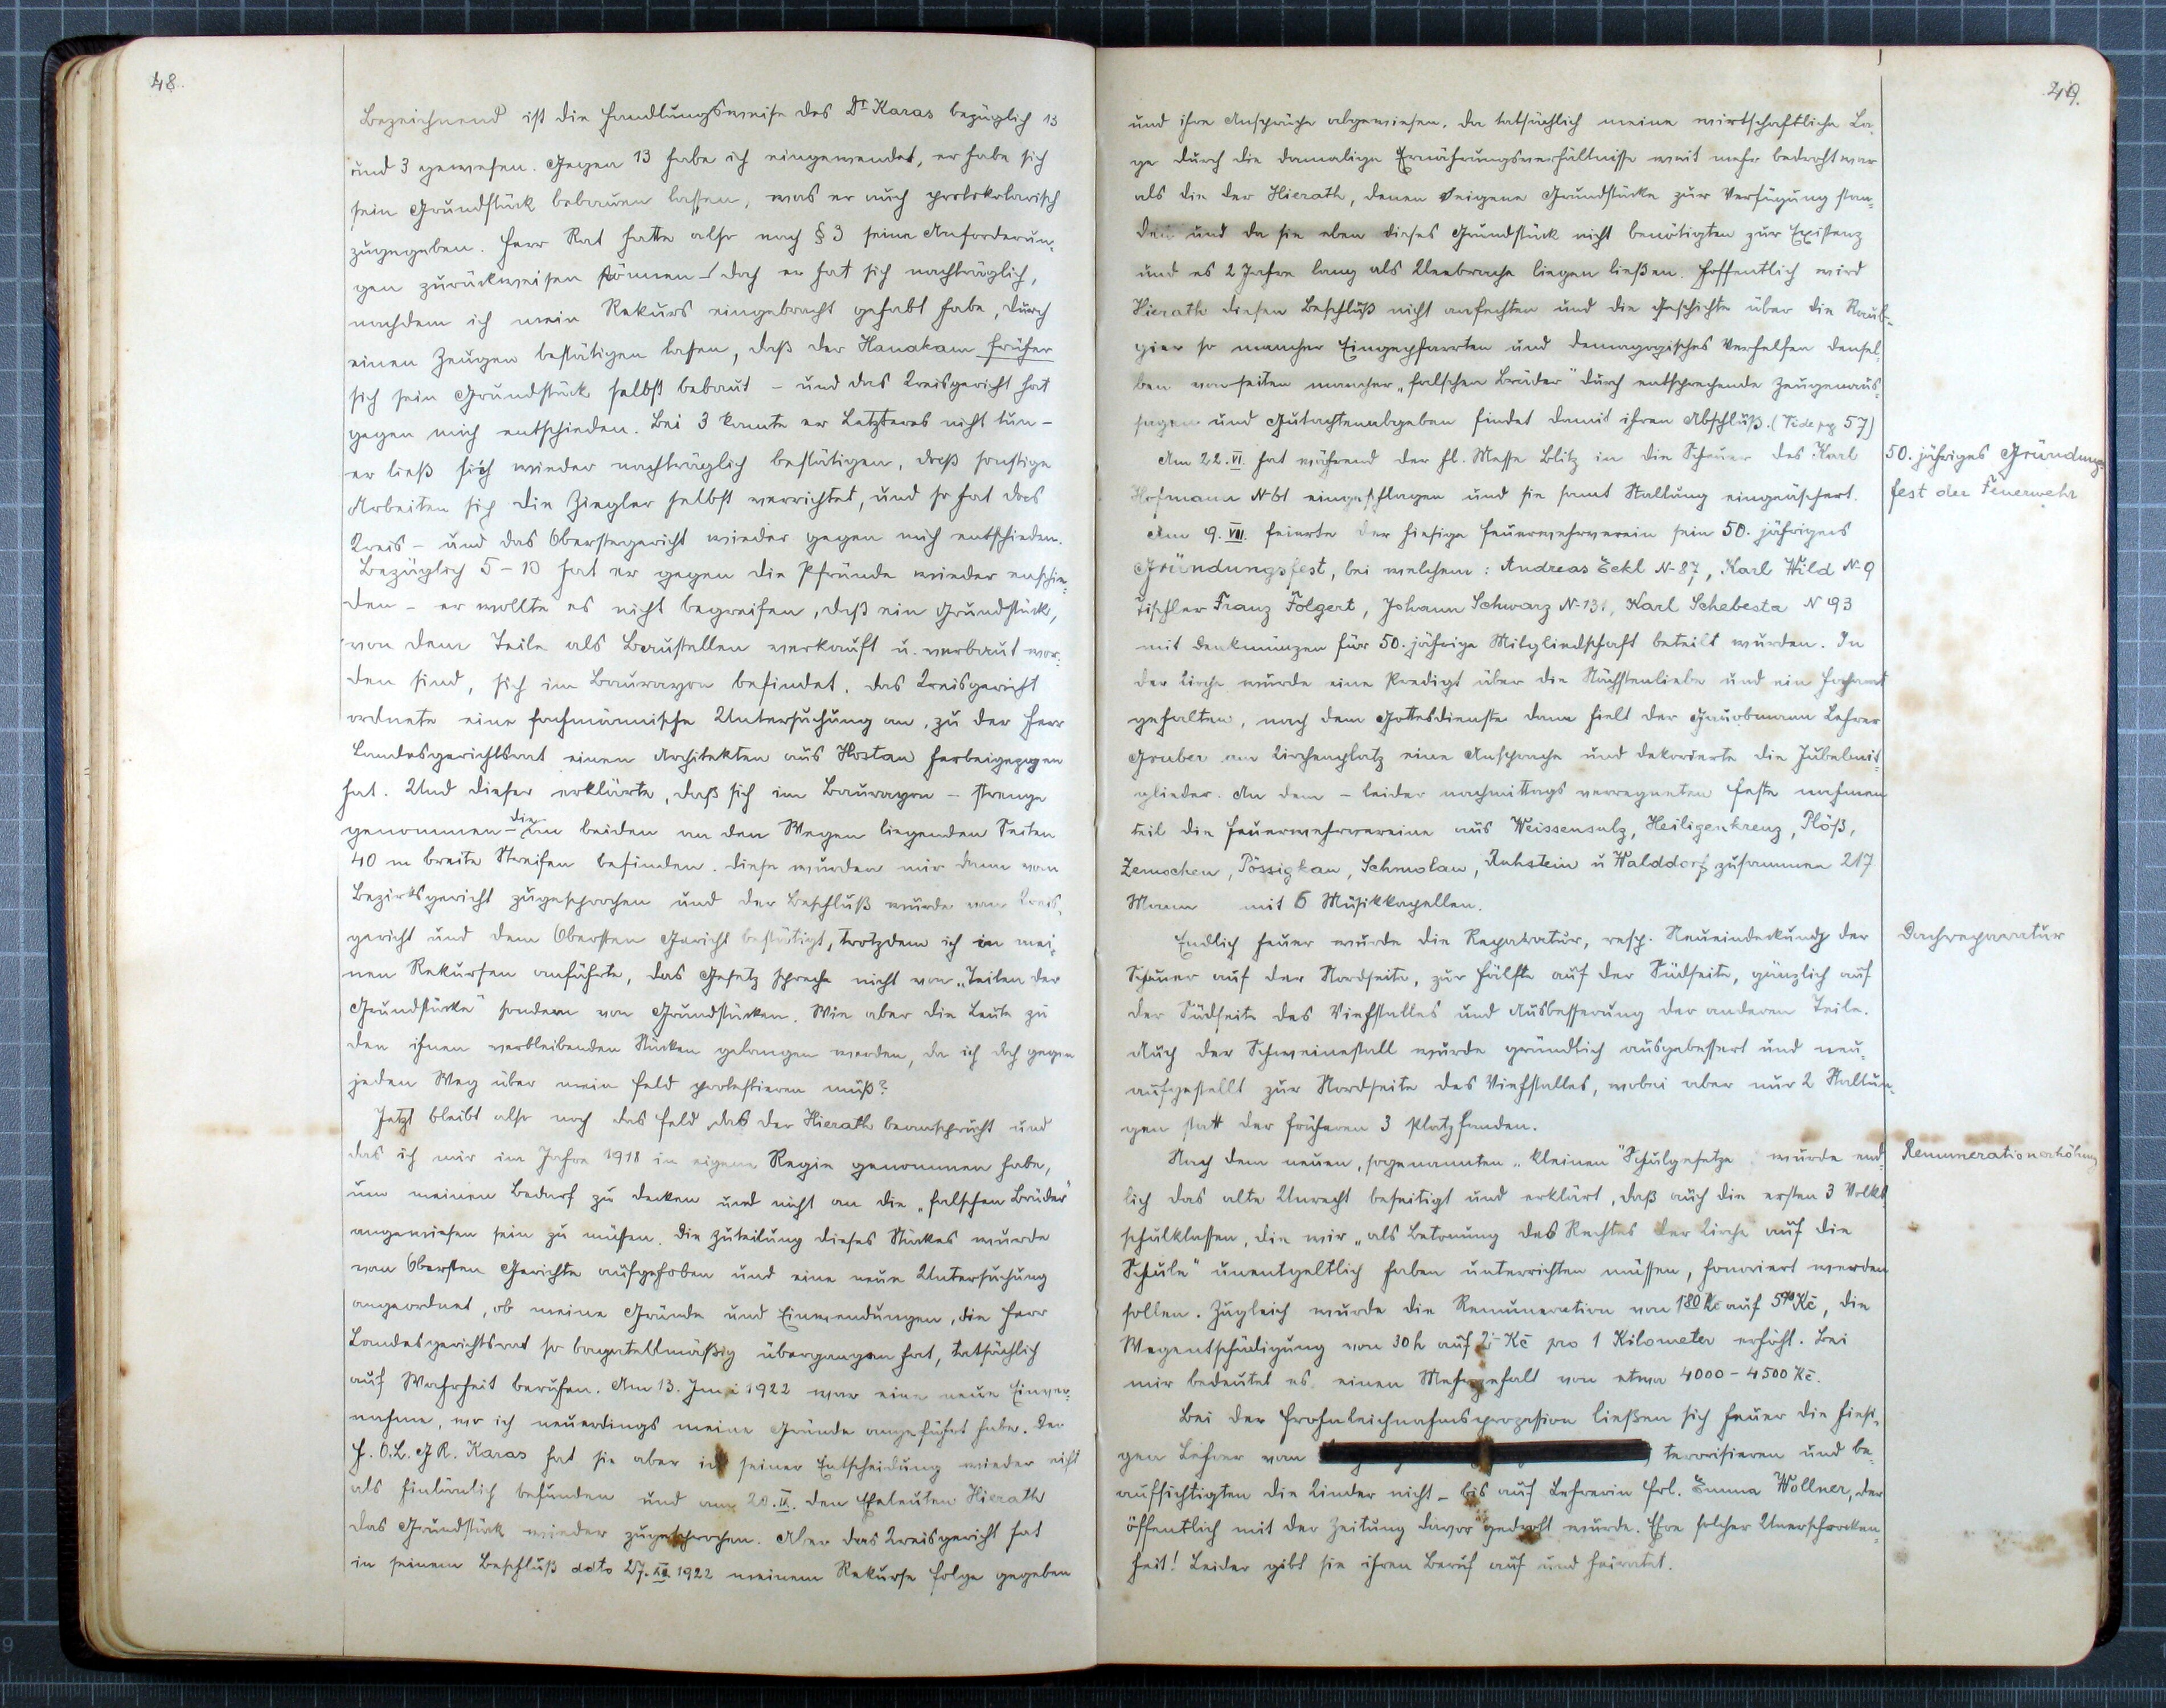 48.
Bezeichnend ist die Handlungsweise des Dr Karas bezüglich 13
und 3 gewesen. Gegen 13 habe ich eingewendet, er habe sich
sein Grundstück bebauen lassen, was er auch protokolarisch
zugegeben. Herr Rat hatte also nach § 3 seine Anforderun-
gen zurückweisen können – doch er hat sich nachträglich,
nachdem ich mein Rekurs eingebracht gehabt habe, durch
einen Zeugen bestätigen lassen, daß der Hanakam früher
sich sein Grundstück selbst bebaut – und das Kreisgericht hat
gegen mich entschieden. Bei 3 konnte er Letzteres nicht tun –
er ließ sich wieder nachträglich bestätigen, daß sonstige
Arbeiten sich die Ziegler selbst verrichtet, und so hat das
Kreis – und das Oberstegericht wieder gegen mich entschieden.
Bezüglich 5 – 10 hat er gegen die Pfründe wieder enschie-
den – er wollte es nicht begreifen, daß ein Grundstück,
von dem Teile als Baustellen verkauft u. verbaut wor-
den sind, sich im Baurayon befindet. Das Kreisgericht
ordnete eine fachmännische Untersuchung an, zu der Herr
Landesgerichtsrat einen Architekten aus Hostau herbeigezogen
hat. Und dieser erklärte, daß sich im Baurayon – strenge
genommen – die an beiden an den Wegen liegenden Seiten
40 m breite Streifen befinden. Diese wurden mir dann vom
Bezirksgericht zugesprochen und der Beschluß wurde vom Kreis-
gericht und dem Obersten Gericht bestätigt, trotzdem ich in mei-
nen Rekursen anführte, das Gesetz spreche nicht von „Teilen der
Grundstücke" sondern von Grundstücken. Wie aber die Leute zu
den ihnen verbleibenden Stücken gelangen werden, da ich doch gegen
jeden Weg über mein Feld protestieren muß?
Jetzt bleibt also noch das Feld, das der Hierath beansprucht und
das ich mir im Jahre 1918 in eigene Regie genommen habe,
um meinen Bedarf zu decken und nicht an die „falschen Brüder"
angewiesen sein zu müssen. Die Zuteilung dieses Stückes wurde
vom Obersten Gerichte aufgehoben und eine neue Untersuchung
angeordnet, ob meine Gründe und Einwendungen, die Herr
Landesgerichtsrat so bagatellmäßig übergangen hat, tatsächlich
auf Wahrheit beruhen. Am 13. Juni 1922 war eine neue Einver-
nahme, wo ich neuerdings meine Gründe angeführt habe. Der
H. O.L.G.R. Karas hat sie aber in seiner Entscheidung wieder nicht
als hinlänlich befunden und am 20. IX. den Eheleuten Hierath
das Grundstück wieder zugesprochen. Aber das Kreisgericht hat
in seinem Beschluß ddto 27. XII. 1922 meinem Rekurse folge gegeben
49.
und ihre Ansprüche abgewiesen, da tatsächlich meine wirtschaftliche La-
ge durch die damalige Ernährungsverhältnisse weit mehr bedroht war
als die der Hierath, denen eigene Grundstücke zur Verfügung stan-
den und da sie eben dieses Grundstück nicht benötigten zur Existenz
und es 2 Jahre lang als Unebrache liegen ließen. Hoffentlich wird
Hierath diesen Beschluß nicht anfechten und die Geschichte über die Raub-
gier so mancher Eingepfarrten und demagogisches Verhelfen densel-
ben vonseiten mancher „falschen Brüder" durch entsprechende Zeugenaus-
sagen und Gutachtenabgeben findet damit ihren Abschluß. (Vide pg 57)
Am 22. VI. hat während der hl. Messe Blitz in die Scheuer des Karl
Hofmann N 61 eingeschlagen und sie samt Stallung eingeäschert.
50. jähriges Gründungs-
fest der Feuerwehr
Am 9. VII. feierte der hiesige Feuerwehrverein sein 50. jähriges
Gründungsfest, bei welchem: Andreas Eckl N-87, Karl Wild N-9
Tischler Franz Folgert, Johann Schwarz N-131, Karl Schebesta N 93
mit Denkmünzen für 50. jährige Mitgliedschaft beteilt wurden. In
der Kirche wurde eine Predigt über die Nächstenliebe und ein Hochamt
gehalten, nach dem Gottesdienste dann hielt der Gauobmann Lehrer
Gruber am Kirchenplatz eine Ansprache und dekorierte die Jubelmit-
glieder. An dem – leider nachmittags verregneten Feste nahmen
teil die Feuerwehrvereine aus Weissensulz, Heiligenkreuz, Plöß,
Zemschen, Pössigkau, Schmolau, Ruhstein u Walddorf zusammen 217
Mann mit 6 Musikkapellen.
Endlich heuer wurde die Reparatur, resp. Neueindeckung der
Scheuer auf der Nordseite, zur Hälfte auf der Südseite, gänzlich auf
der Südseite des Viehstalles und Ausbesserung der anderen Teile.
Auch der Schweinestall wurde gründlich ausgebessert und neu-
aufgestellt zur Nordseite des Viehstalles, wobei aber nur 2 Stallun-
gen statt der früheren 3 Platz fanden.
Dachreparatur
Nach dem neuen, sogenannten „kleinen" Schulgesetze wurde end-
lich das alte Unrecht beseitigt und erklärt, daß auch die ersten 3 Volks-
schulklassen, die wir „als Betonung des Rechtes der Kirche auf die
Schule" unentgeltlich haben unterrichten müssen, honoriert werden
sollen. Zugleich wurde die Remuneration von 180 Kč auf 540 Kč, die
Wegentschädigung von 30 h auf 2 Kč pro 1 Kilometer erhöht. Bei
mir bedeutet es einen Mehrgehalt von etwa 4000 – 4500 Kč.
Remunerationerhöhung
Bei der Frohnleichnahmsprozession ließen sich heuer die hiesi-
gen Lehrer vom terrorisieren und be-
aufsichtigten die Kinder nicht – bis auf Lehrerin Frl. Emma Wollner, der
öffentlich mit der Zeitung davor gedroht wurde. Ehre solcher Unerschrocken-
heit! Leider gibt sie ihren Beruf auf und heiratet.